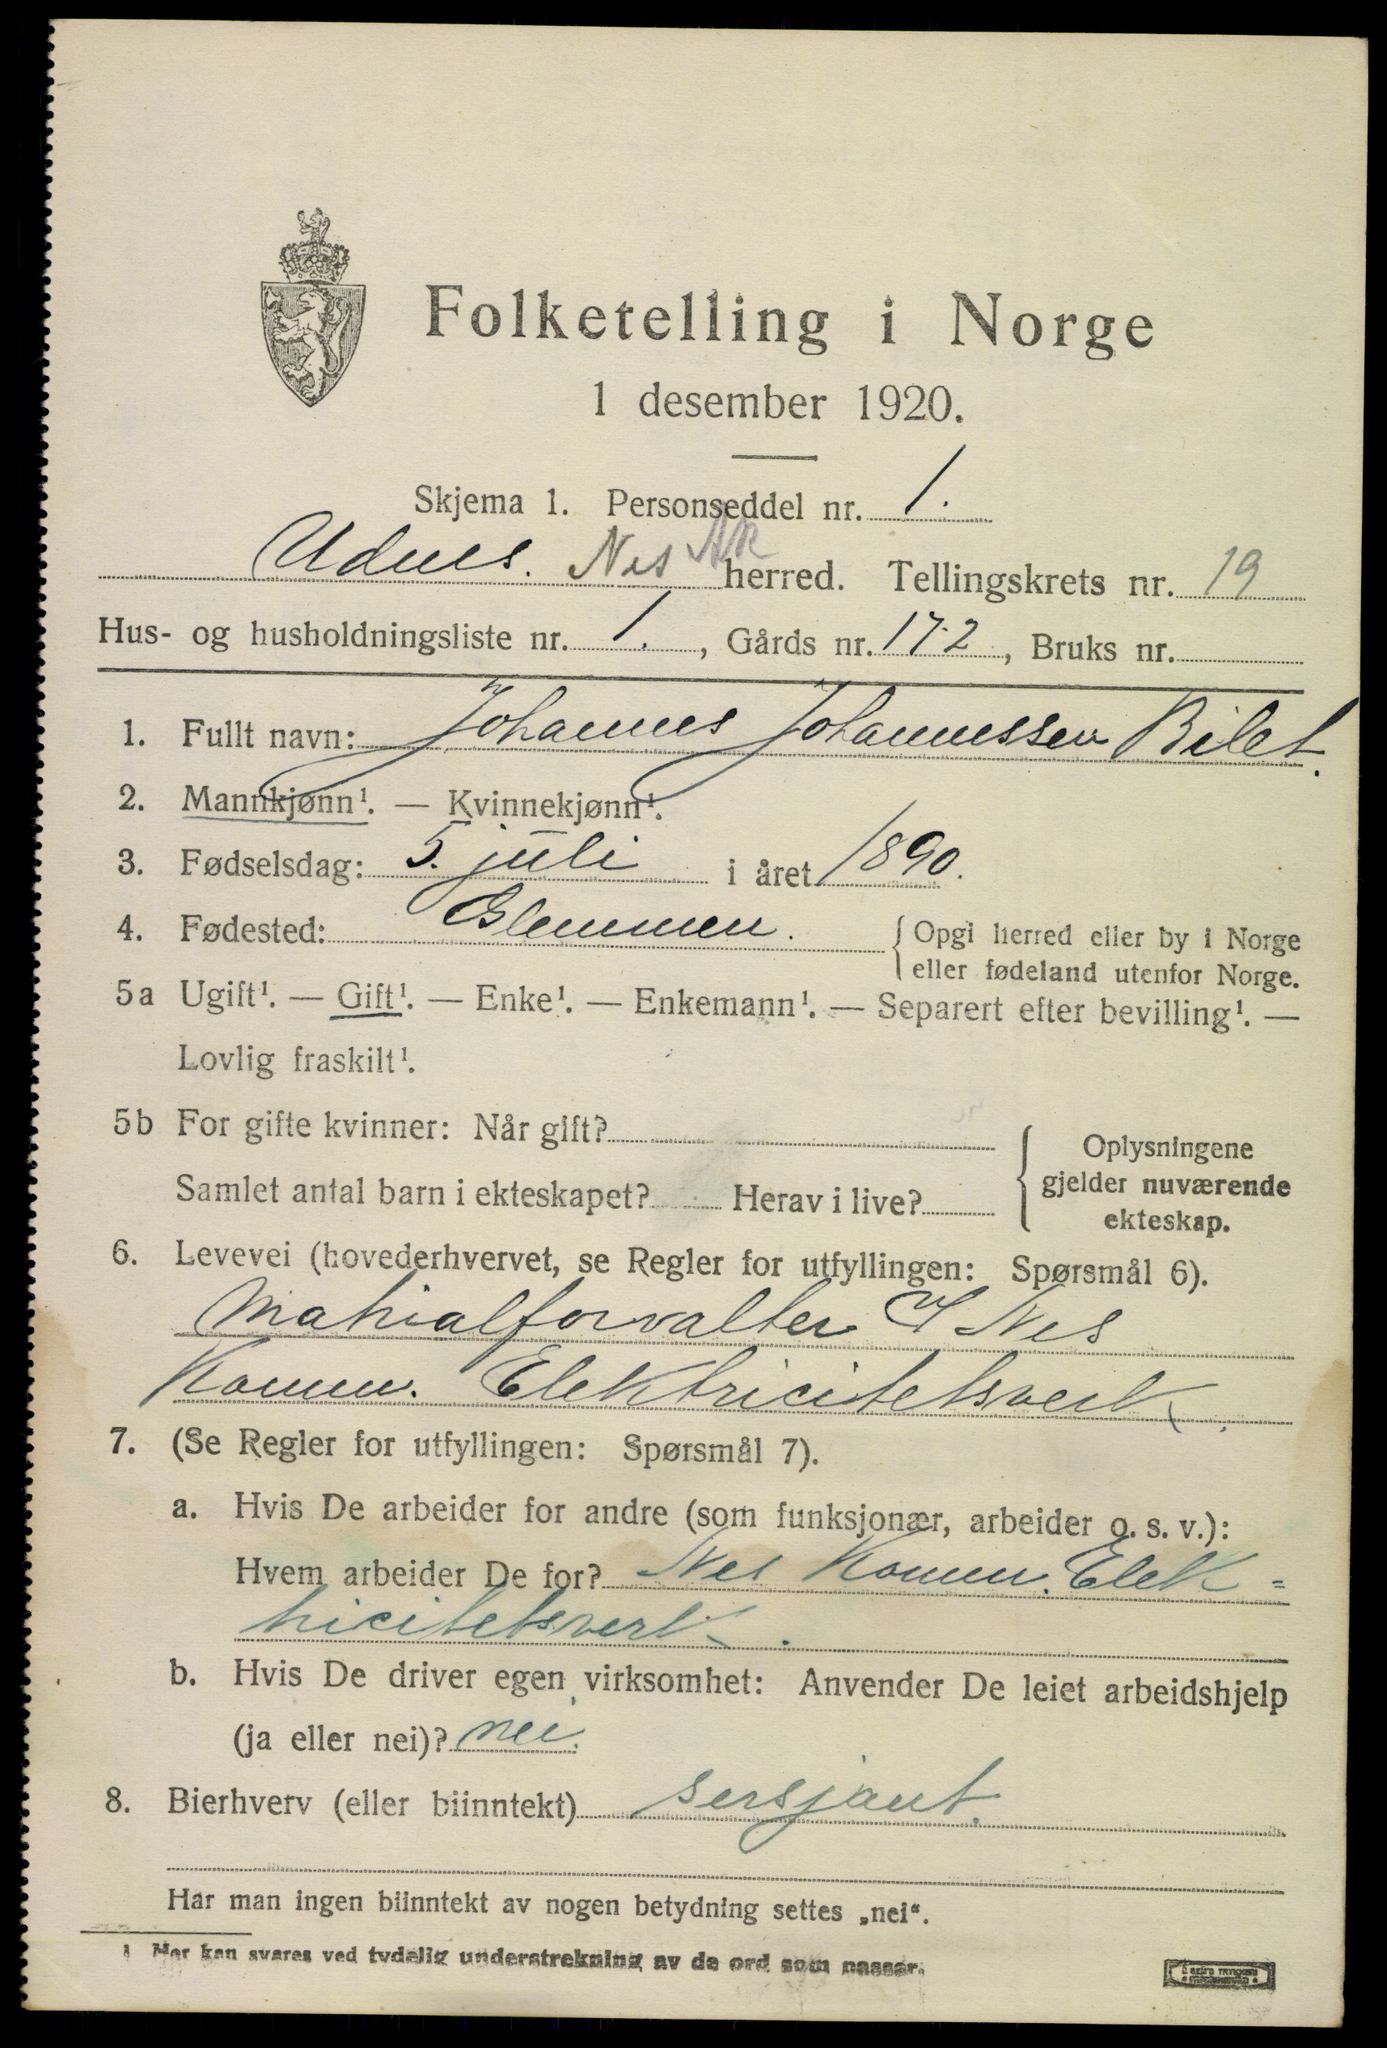 Folketelling i Norge
1 desember 1920.
Skjema 1. Personseddel nr. 1.
Udnes. Nes AK herred. Tellingskrets nr. 19
Hus- og husholdningsliste nr. 1. , Gårds nr. 172 , Bruks nr.
1. Fullt navn: Johannes Johannessen Bilet.
2. Mannkjønn¹. — Kvinnekjønn¹.
3. Fødselsdag: 5. juli i året 1890.
4. Fødested: Glemmen. { Opgi herred eller by i Norge
eller fødeland utenfor Norge.
5a Ugift¹. — Gift¹. — Enke¹. — Enkemann¹. — Separert efter bevilling¹. —
Lovlig fraskilt¹.
5b For gifte kvinner: Når gift? { Oplysningene
gjelder nuværende
ekteskap.
Samlet antal barn i ekteskapet? Herav i live?
6. Levevei (hovederhvervet, se Regler for utfyllingen: Spørsmål 6).
Matrialforvalter I Nes
Komm. Elektricitetsverk.
7. (Se Regler for utfyllingen: Spørsmål 7).
a. Hvis De arbeider for andre (som funksjonær, arbeider o. s. v.):
Hvem arbeider De for? Nes Komm. Elek-
tricitetsverk.
b. Hvis De driver egen virksomhet: Anvender De leiet arbeidshjelp
(ja eller nei)? nei.
8. Bierhverv (eller biinntekt) sersjant.
Har man ingen biinntekt av nogen betydning settes „nei“.
¹ Her kan svares ved tydelig understrekning av de ord som passer.